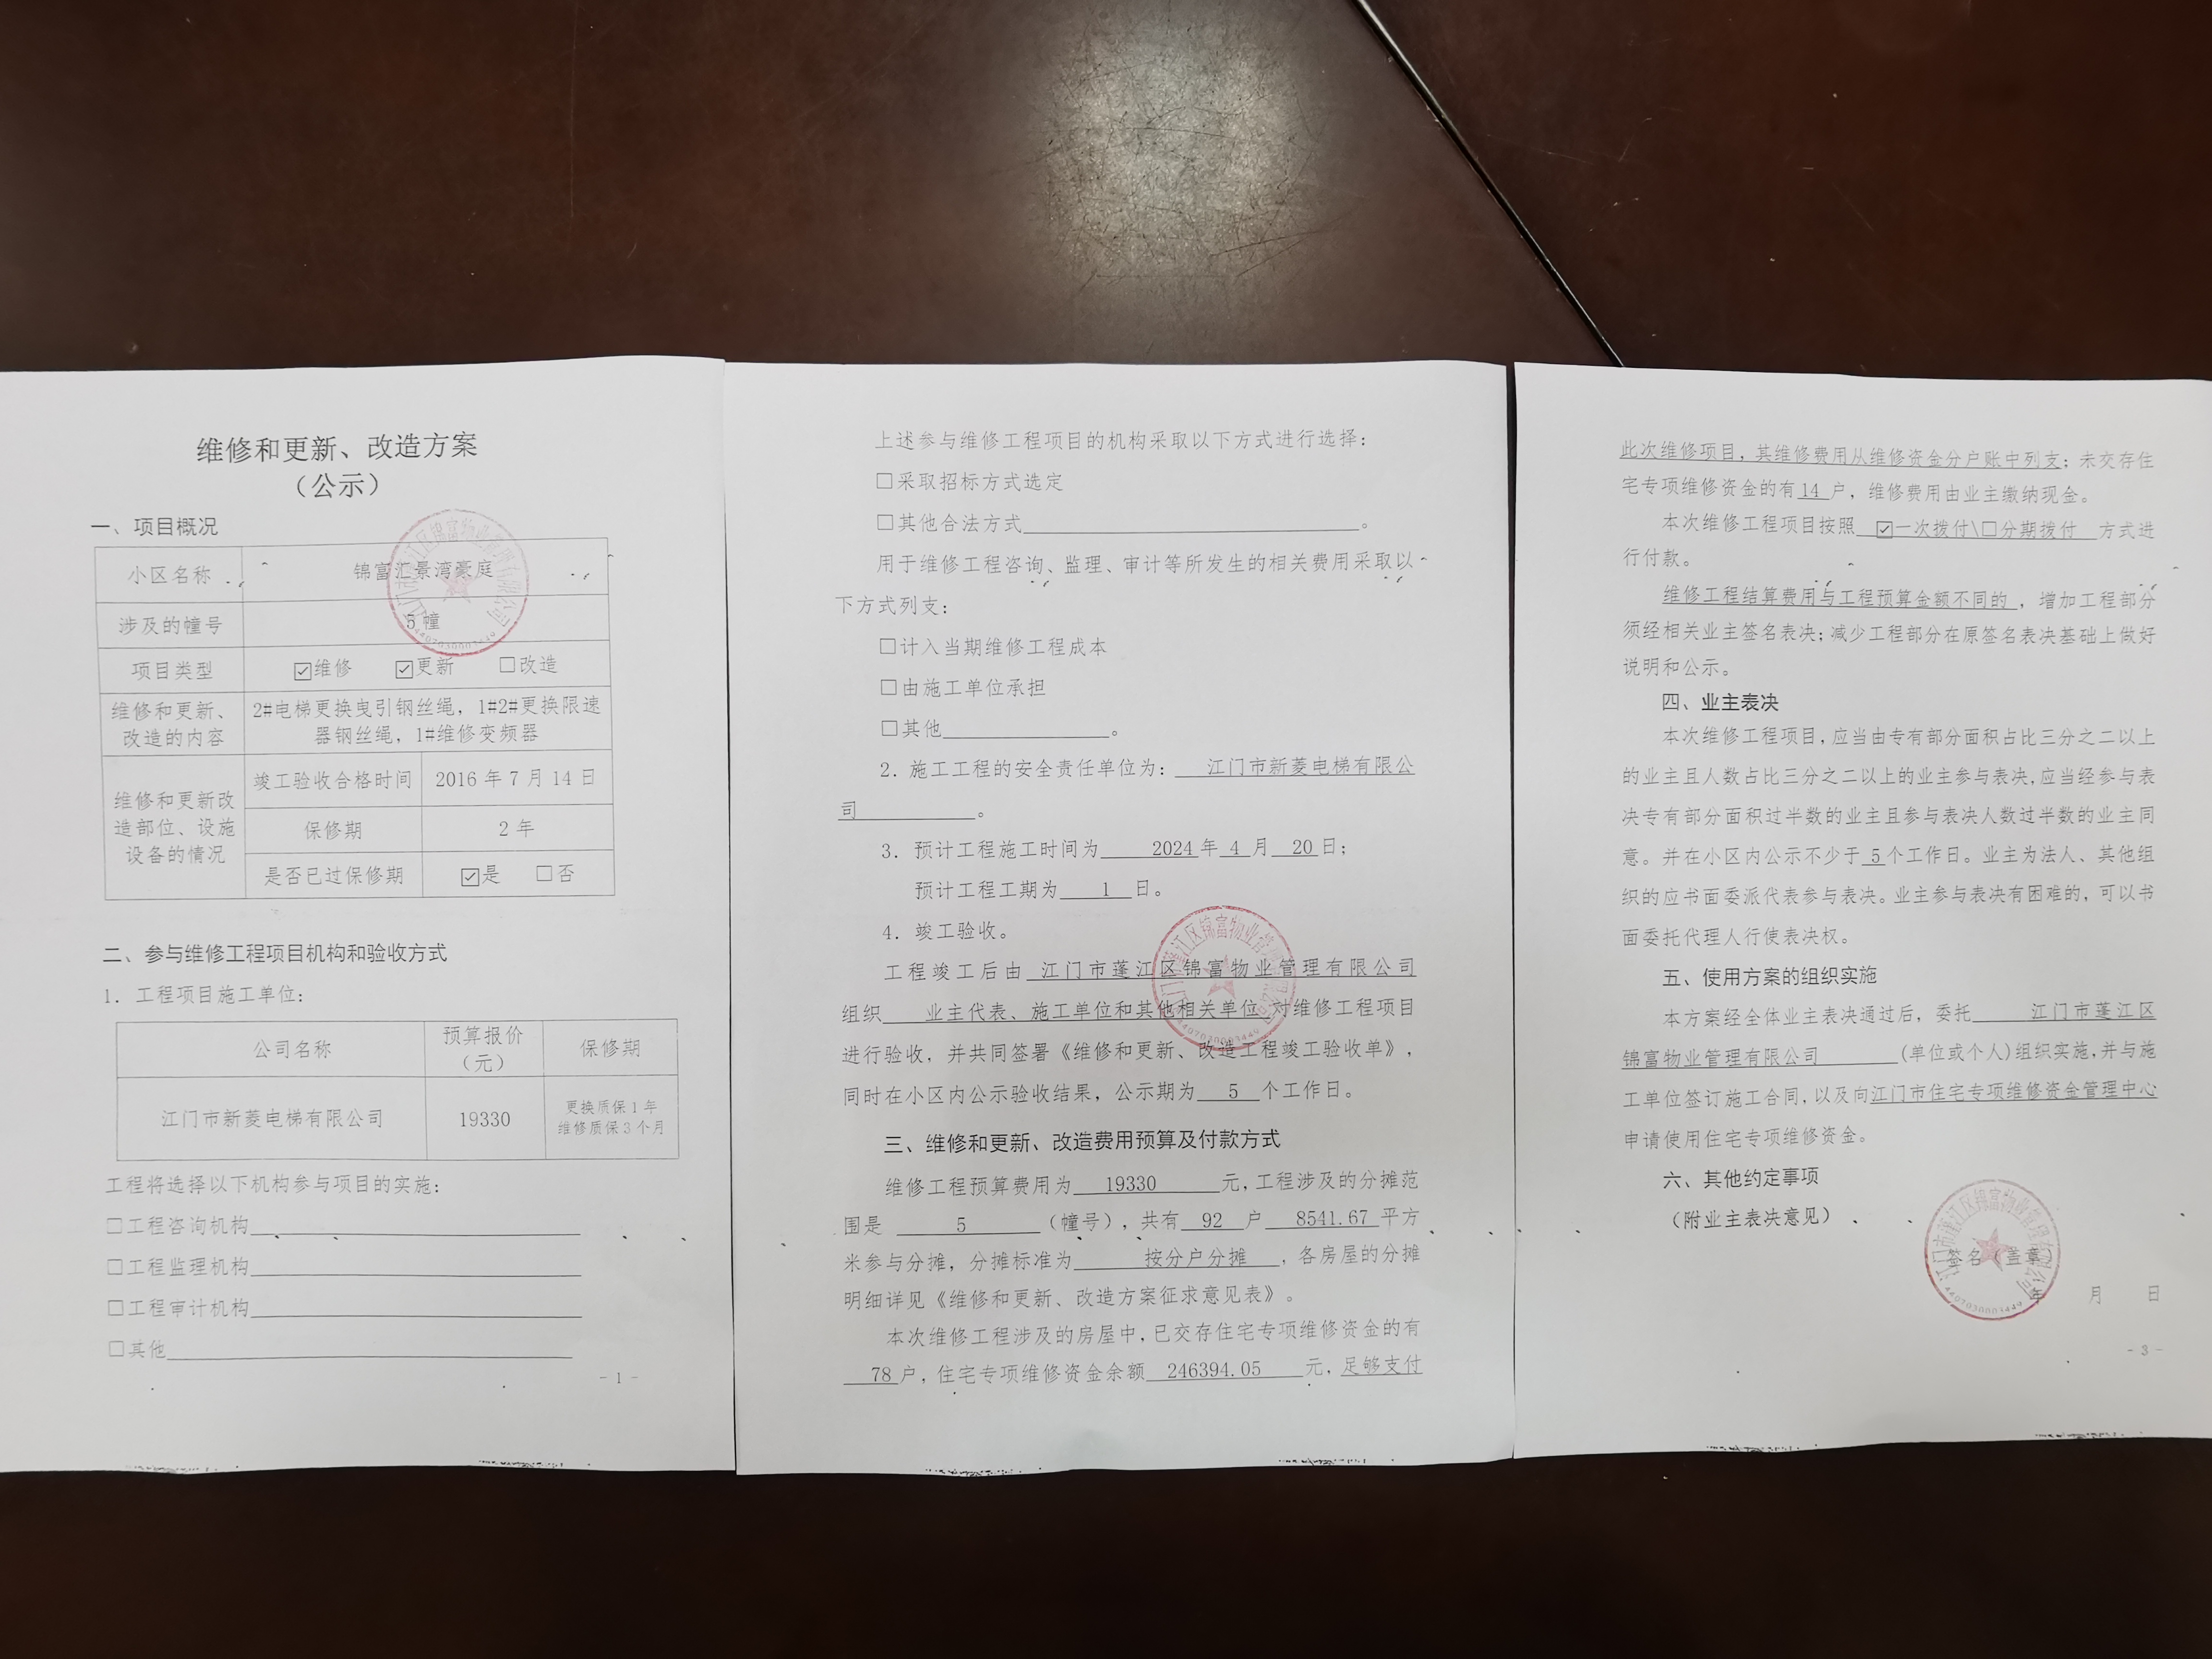 维修和更新、改造方案
（公示）
一、项目概况
小区名称 锦富汇景湾豪庭
涉及的幢号 5 幢
项目类型 ☑维修 ☑更新 □改造
维修和更新、改造的内容 2#电梯更换曳引钢丝绳，1#2#更换限速
器钢丝绳，1#维修变频器
维修和更新改造部位、设施设备的情况 竣工验收合格时间 2016 年 7 月 14 日
保修期 2 年
是否已过保修期 ☑是 □否
二、参与维修工程项目机构和验收方式
1. 工程项目施工单位：
公司名称 预算报价（元） 保修期
江门市新菱电梯有限公司 19330 更换质保 1 年 维修质保 3 个月
工程将选择以下机构参与项目的实施：
□工程咨询机构
□工程监理机构
□工程审计机构
□其他
- 1 -
上述参与维修工程项目的机构采取以下方式进行选择：
□采取招标方式选定
□其他合法方式。
用于维修工程咨询、监理、审计等所发生的相关费用采取以
下方式列支：
□计入当期维修工程成本
□由施工单位承担
□其他。
2. 施工工程的安全责任单位为：江门市新菱电梯有限公
司。
3. 预计工程施工时间为 2024 年 4 月 20 日；
预计工程工期为 1 日。
4. 竣工验收。
工程竣工后由 江门市蓬江区锦富物业管理有限公司
组织 业主代表、施工单位和其他相关单位 对维修工程项目
进行验收，并共同签署《维修和更新、改造工程竣工验收单》，
同时在小区内公示验收结果，公示期为 5 个工作日。
三、维修和更新、改造费用预算及付款方式
维修工程预算费用为 19330 元，工程涉及的分摊范
围是 5 （幢号），共有 92 户 8541.67 平方
米参与分摊，分摊标准为 按分户分摊 ，各房屋的分摊
明细详见《维修和更新、改造方案征求意见表》。
本次维修工程涉及的房屋中，已交存住宅专项维修资金的有
78 户，住宅专项维修资金余额 246394.05 元，足够支付
此次维修项目，其维修费用从维修资金分户账中列支；未交存住
宅专项维修资金的有 14 户，维修费用由业主缴纳现金。
本次维修工程项目按照 ☑一次拨付\□分期拨付 方式进
行付款。
维修工程结算费用与工程预算金额不同的，增加工程部分
须经相关业主签名表决；减少工程部分在原签名表决基础上做好
说明和公示。
四、业主表决
本次维修工程项目，应当由专有部分面积占比三分之二以上
的业主且人数占比三分之二以上的业主参与表决，应当经参与表
决专有部分面积过半数的业主且参与表决人数过半数的业主同
意。并在小区内公示不少于 5 个工作日。业主为法人、其他组
织的应书面委派代表参与表决。业主参与表决有困难的，可以书
面委托代理人行使表决权。
五、使用方案的组织实施
本方案经全体业主表决通过后，委托 江门市蓬江区
锦富物业管理有限公司 （单位或个人）组织实施，并与施
工单位签订施工合同，以及向江门市住宅专项维修资金管理中心
申请使用住宅专项维修资金。
六、其他约定事项
（附业主表决意见）
签名（盖章）
年 月 日
- 3 -